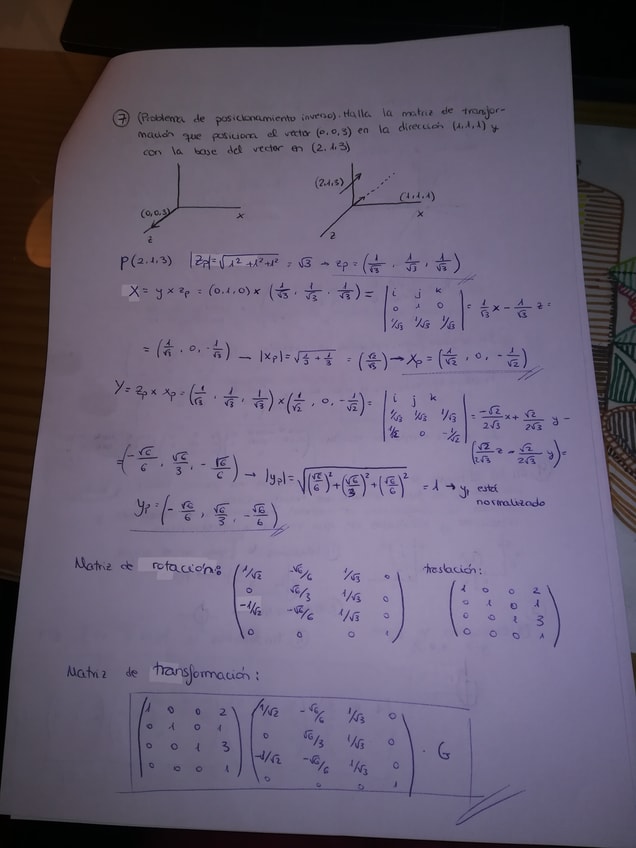 7 (Problema de posicionamiento inverso). Halla la matriz de transfor-
mación que posiciona el vector (0,0,3) en la dirección (1,1,1) y
con la base del vector en (2,1,3)
(0,0,3) x z
(2,1,3) (1,1,1) x z
P(2,1,3) |Zp|=√(1²+1²+1²) = √3 → Zp = (1/√3, 1/√3, 1/√3)
X = y × Zp = (0,1,0) × (1/√3, 1/√3, 1/√3) = | i j k ; 0 1 0 ; 1/√3 1/√3 1/√3 | = 1/√3 x - 1/√3 z =
= (1/√3, 0, -1/√3) → |Xp| = √(1/3 + 1/3) = (√2/√3) → Xp = (1/√2, 0, -1/√2)
Y = Zp × Xp = (1/√3, 1/√3, 1/√3) × (1/√2, 0, -1/√2) = | i j k ; 1/√3 1/√3 1/√3 ; 1/√2 0 -1/√2 | = -√2/2√3 x + √2/2√3 y -
(√2/2√3 z - √2/2√3 y) =
= (-√6/6, √6/3, -√6/6) → |yp| = √((√6/6)² + (√6/3)² + (√6/6)²) = 1 → yp está
normalizado
Yp = (-√6/6, √6/3, -√6/6)
Matriz de rotación: traslación:
1/√2 -√6/6 1/√3 0 1 0 0 2
0 √6/3 1/√3 0 0 1 0 1
-1/√2 -√6/6 1/√3 0 0 0 1 3
0 0 0 1 0 0 0 1
Matriz de transformación:
1 0 0 2 1/√2 -√6/6 1/√3 0
0 1 0 1 0 √6/3 1/√3 0 · G
0 0 1 3 -1/√2 -√6/6 1/√3 0
0 0 0 1 0 0 0 1